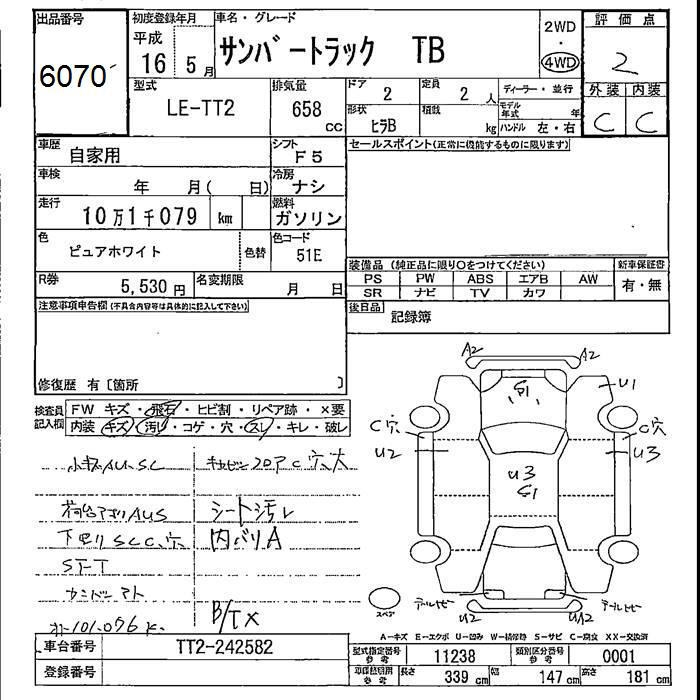 出品番号 初度登録年月 車名・グレード 評価点
6070 平成 16 5月 サンバートラック TB 2WD・4WD 2
型式 排気量 ドア 2 定員 2人 ディーラー・並行 外装 内装
LE-TT2 658 cc 形状 ヒラB 積載 kg モデル年式 年 ハンドル 左・右 C C
車歴 自家用 シフト F5 セールスポイント(正常に機能するものに限ります)
車検 年 月( 日) 冷房 ナシ
走行 10万1千079 km 燃料 ガソリン
色 ピュアホワイト 色替 色コード 51E
装備品 (純正品に限り○をつけてください) 新車保証書
R券 5,530円 名変期限 月 日 PS PW ABS エアB AW 有・無
SR ナビ TV カワ
注意事項申告欄(不具合内容等は具体的に記入して下さい) 後日品 記録簿
修復歴 有〔箇所 〕
検査員記入欄 FW キズ・飛石・ヒビ割・リペア跡・×要
内装 キズ・汚れ・コゲ・穴・スレ・キレ・破レ
小キズAU.SC
荷台アオリAUS シート汚レ
下廻りSCC.穴 内バリA
STT
B/TX
オー101.076K
A2 A2
S1
U1
C穴 C穴
U2 U3
U3
S1
スペア
U2 UA2
A-キズ E-エクボ U-凹み W-補修跡 S-サビ C-腐食 XX-交換済
車台番号 TT2-242582 型式指定番号 参考 11238 類別区分番号 参考 0001
登録番号 参考 長さ 339 cm 幅 147 cm 高さ 181 cm